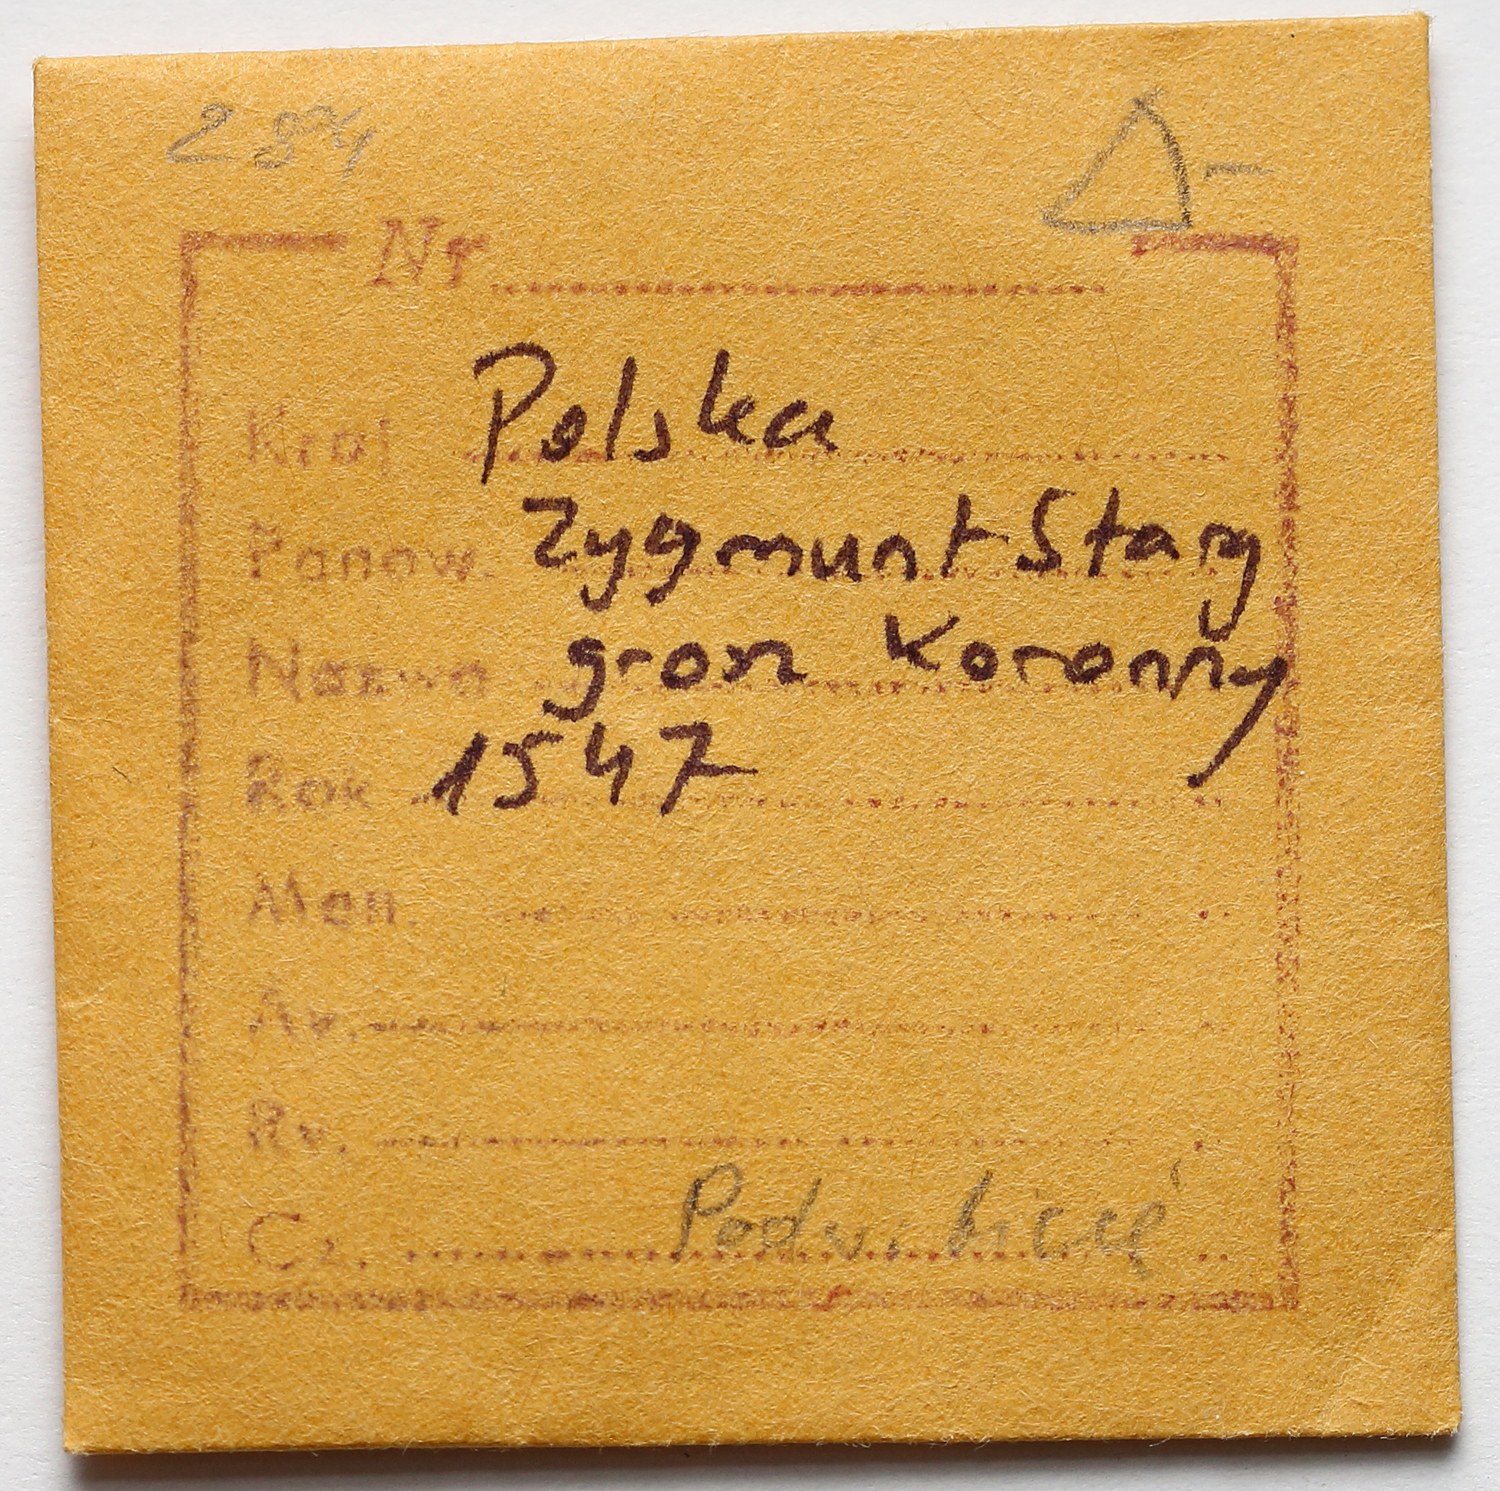 284
Δ-
Nr
Kraj Polska
Panow. Zygmunt Stary
Nazwa grosz Koronny
Rok 1547
Men.
Av.
Rv.
Cz.